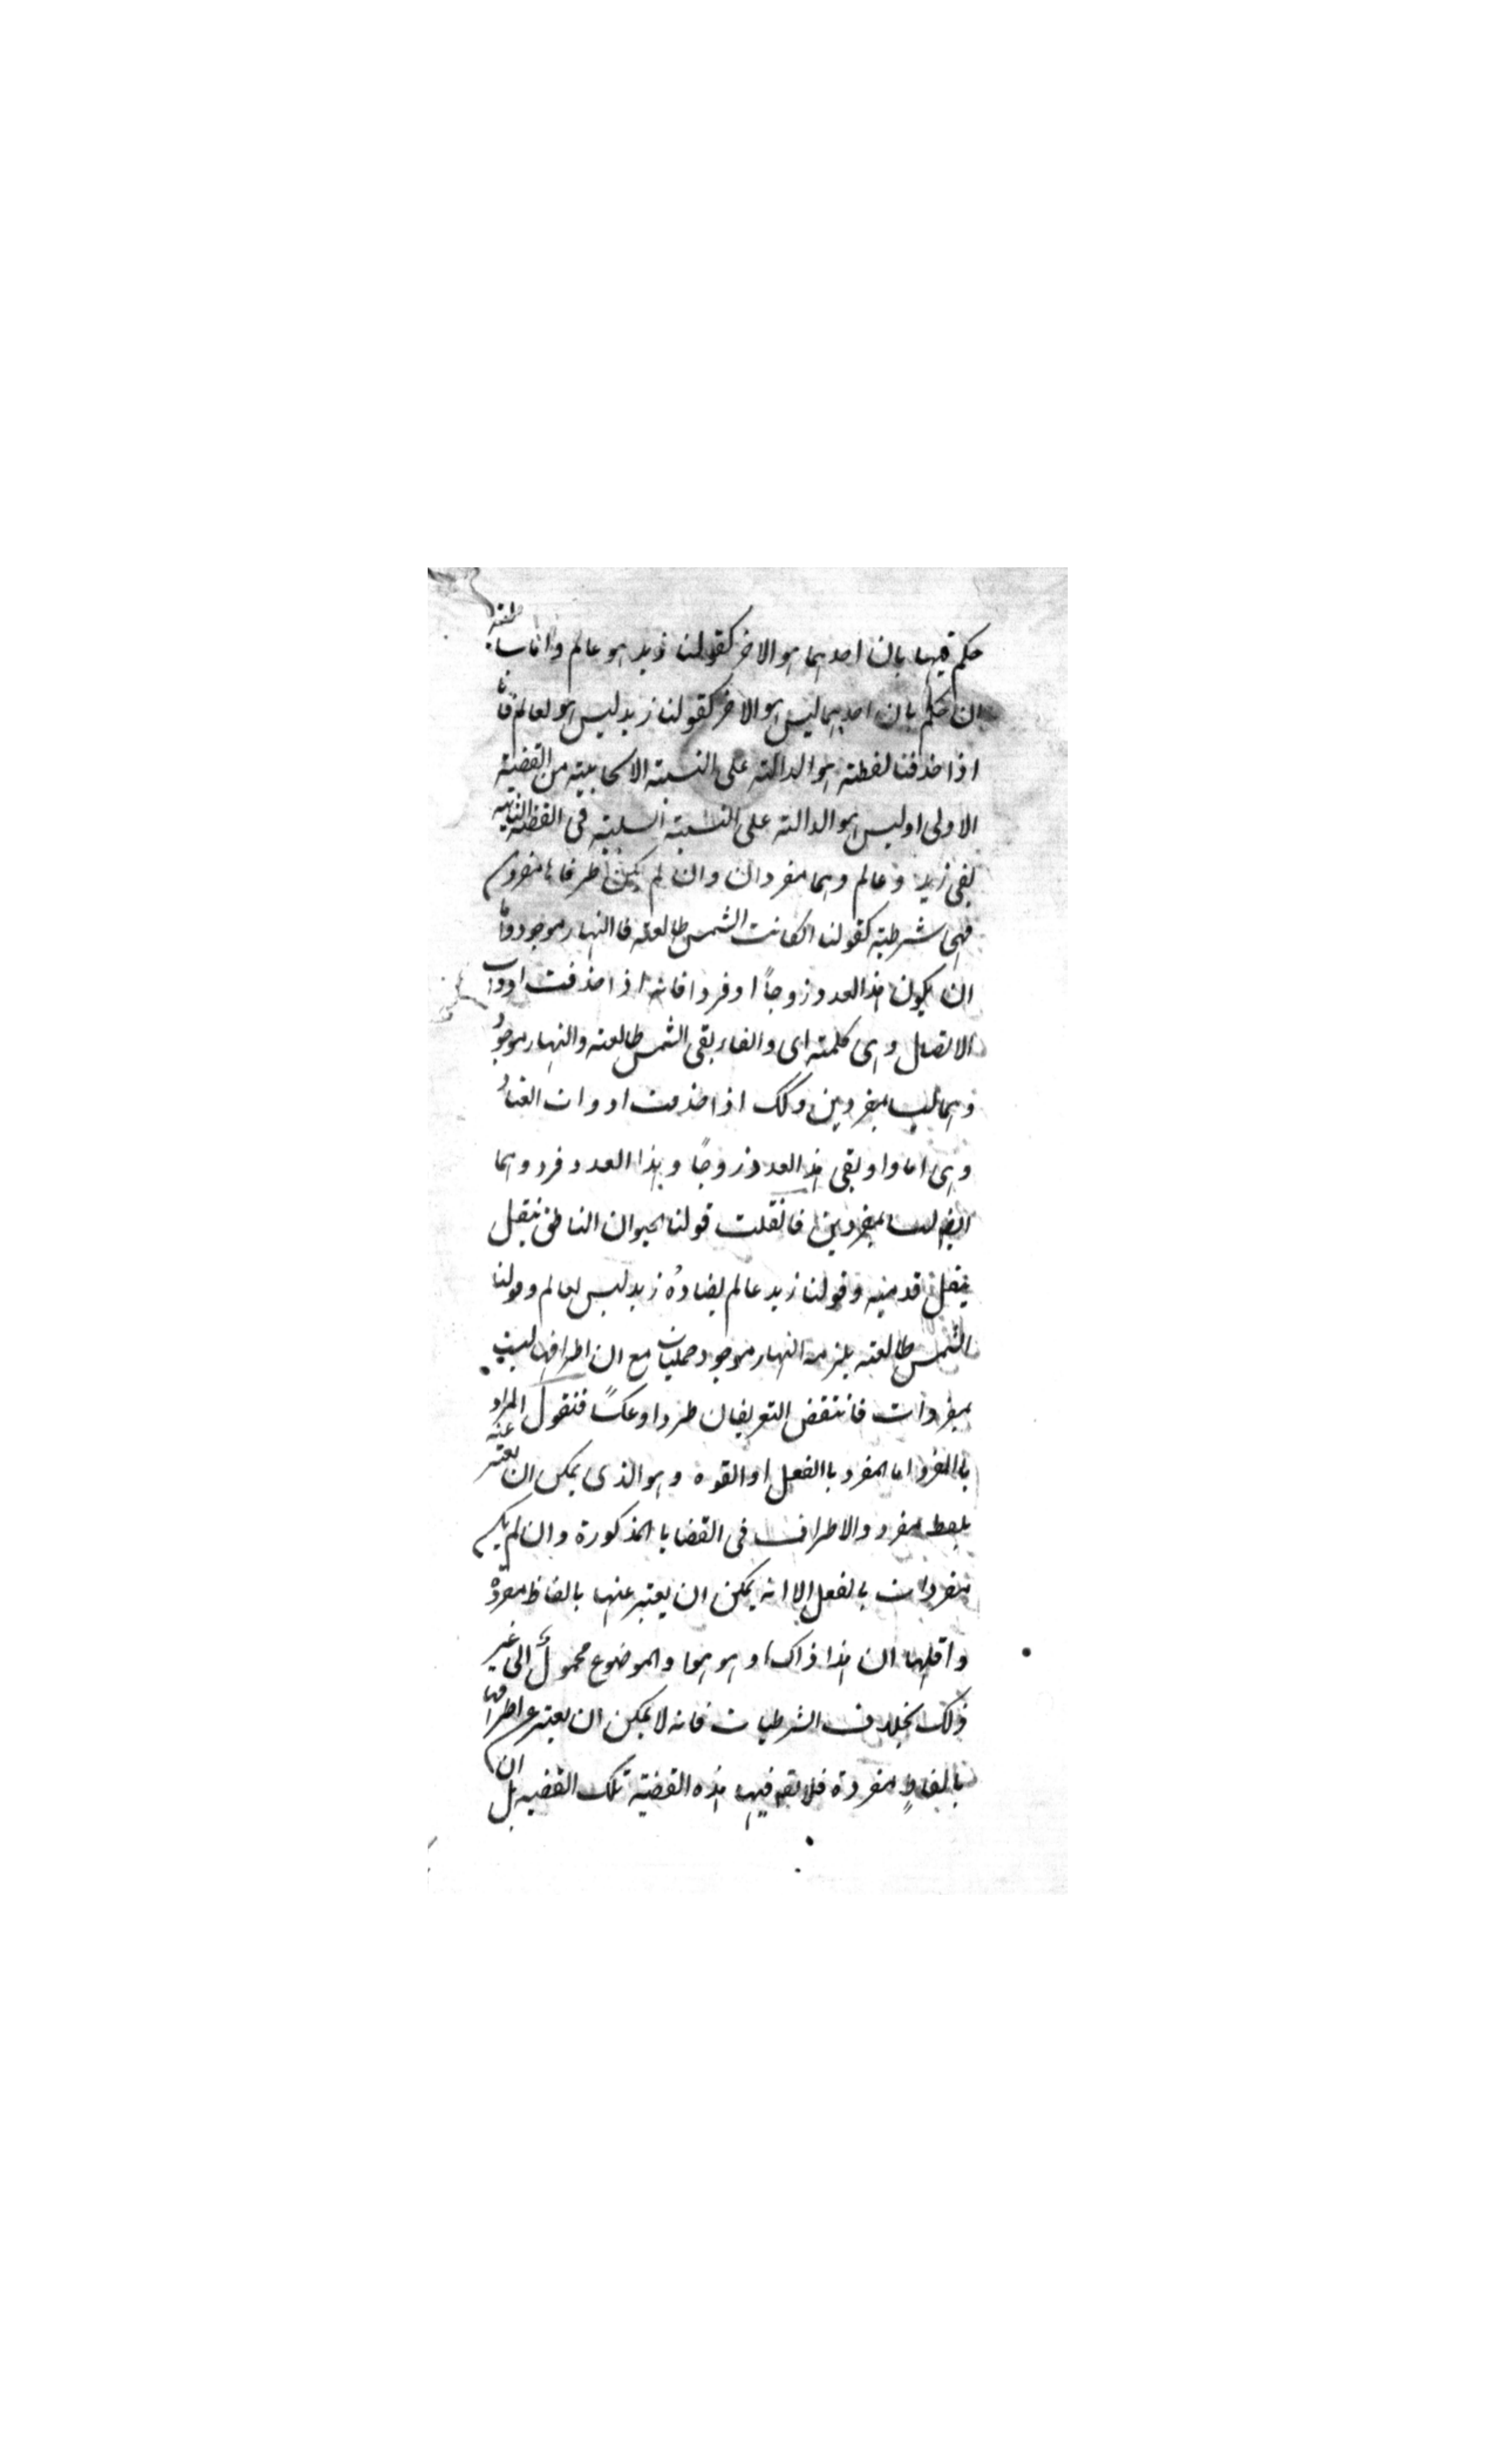 حكم فيها بان احدهما هو الاخر كقولنا زيد هو عالم واما سالبة
ان حكم بان احدهما ليس هو الاخر كقولنا زيد ليس هو بعالم فانا
اذا حذفنا لفظة هو الدالة على النسبة الايجابية من القضية
الاولى او ليس هو الدالة على النسبة السلبية فى القضية الثانية
بقى زيد و عالم وهما مفردان وان لم يكن طرفاها مفردين
فهى شرطية كقولنا انكانت الشمس طالعة فاالنهار موجود واما
ان يكون هذا العدد زوجاً او فردا فانه اذا حذفت ادوات
الاتصال وهى كلمة اى والفا بقى الشمس طالعة والنهار موجود
وهما ليسا بمفردين وكك اذا حذفت ادوات العناد
وهى اما واو بقى هذا العدد زوجاً وهذا العدد فرد وهما
ايضا ليسا بمفردين فانقلت قولنا الحيوان الناطق ينتقل
بنقل قدميه وقولنا زيد عالم يضاده زيد ليس بعالم وقولنا
الشمس طالعة يلزمه النهار موجود حمليات مع ان اطرافها ليست
بمفردات فانتقض التعريفان طردا وعكساً فنقول المراد
باالمفرد اما المفرد باالفعل او القوه وهو الذى يمكن ان يعتبر عنه
بلفظ مفرد والاطراف فى القضايا المذكورة وان لم يكن
مفردات بالفعل الا انه يمكن ان يعتبر عنها بالفاظ مفردة
واقلها ان هذا ذاك او هو هو والموضوع محمول الى غير
ذلك بخلاف الشرطيات فانه لا يمكن ان يعتبر عن اطرافها
بالفاظٍ مفردة فلا يقم فيها هذه القضية تلك القضيه بل ان